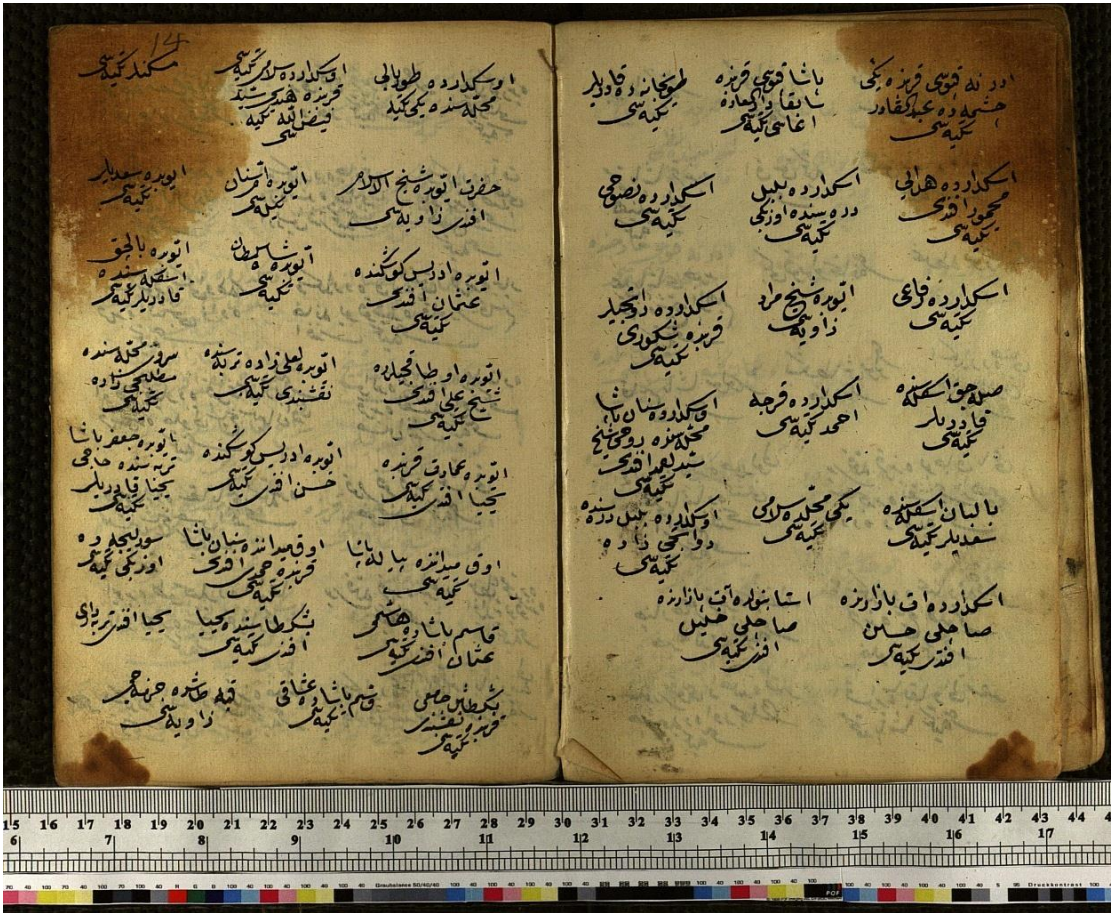 ادرنه قپوسی قربنده یکی
چشمه ده عبدالقادر
تکیه سی
پاشا قپوسی قربنده
سابقا دارالسعاده
اغاسی تکیه سی
طوپخانه ده قادریلر
تکیه سی
اسکدارده هدایی
محمود افندی
تکیه سی
اسکدارده بلبل
دره سنده اوزبکی
تکیه سی
اسکدارده نصوحی
تکیه سی
اسکدارده رفاعی
تکیه سی
ایوبده شیخ مراد
زاویه سی
اسکدارده
قربنده شکوری
تکیه سی
صلاجق اسکله سنده
قادریلر
تکیه سی
اسکدارده قرجه
احمد تکیه سی
اوسکدارده سنان پاشا
محله سنده شیخ
سید افندی
تکیه سی
بالبان اسکله سنده
سعدیلر تکیه سی
یکی محله ده سلامی
تکیه سی
اوسکدارده بلبل دره سنده
زاده
تکیه سی
اسکدارده ات بازارنده
صاچلی حسین
افندی تکیه سی
استانبولده ات بازارنده
صاچلی خلیل
افندی تکیه سی
14
اوسکدارده طوپالی
محله سنده یکی تکیه
اوسکدارده سلامی تکیه سی
قربنده هندی سید
فیض الله تکیه
سی
تکیه سی
حضرت ایوبده شیخ الاسلام
افندی زاویه سی
ایوبده
تکیه سی
ایوبده سعدیلر
تکیه سی
ایوبده ادریس کوشکنده
عثمان افندی
تکیه سی
ایوبده شاه سلطان
تکیه سی
ایوبده بالچق
اسکله سنده
قادریلر تکیه سی
ایوبده اوطاقجیلرده
شیخ علی افندی
تکیه سی
ایوبده لعلی زاده تربه سنده
نقشبندی تکیه سی
محله سنده
زاده
تکیه سی
ایوبده قربنده
یحیا افندی تکیه سی
ایوبده ادریس کوشکنده
حسن افندی تکیه سی
ایوبده جعفر پاشا
تربه سنده حاجی
یحیا قادریلر
تکیه سی
اوق میداننده پیاله پاشا
تکیه سی
اوق میداننده سنان پاشا
قربنده حمدی افندی
تکیه سی
سودلیجه ده
اوزبکی تکیه سی
قاسم پاشاده هاشمی
عثمان افندی تکیه سی
بشکطاشده یحیا
افندی تکیه سی
یحیا افندی
بشکطاش
قربنده نقشبندی
تکیه سی
قاسم پاشاده عشاقی
تکیه سی
قبه طاشده حمزه جی
زاویه سی